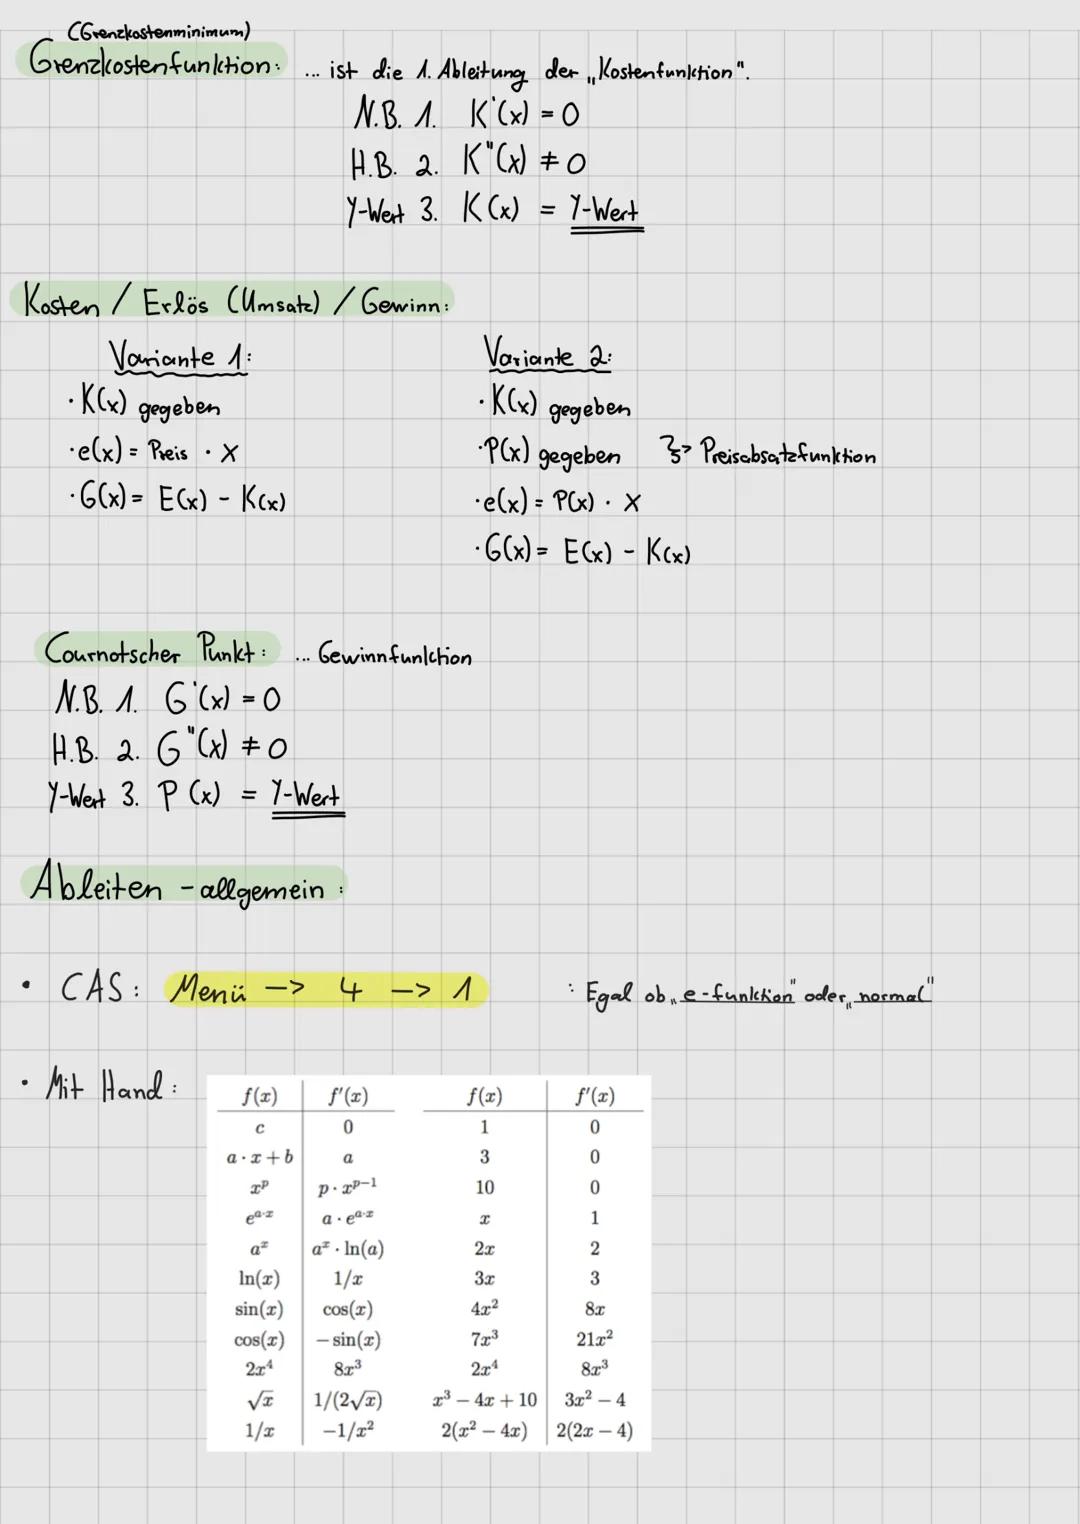 (Grenzkostenminimum)
Grenzkostenfunktion: ... ist die 1. Ableitung der „Kostenfunktion".
N.B. 1. K'(x) = 0
H.B. 2. K"(x) ≠ 0
Y-Wert 3. K(x) = Y-Wert
Kosten / Erlös (Umsatz) / Gewinn:
Variante 1:
· K(x) gegeben
· e(x) = Preis · x
· G(x) = E(x) - K(x)
Variante 2:
· K(x) gegeben
· P(x) gegeben → Preisabsatzfunktion
· e(x) = P(x) · x
· G(x) = E(x) - K(x)
Cournotscher Punkt: ... Gewinnfunktion
N.B. 1. G'(x) = 0
H.B. 2. G"(x) ≠ 0
Y-Wert 3. P(x) = Y-Wert
Ableiten - allgemein:
• CAS: Menü -> 4 -> 1 : Egal ob „e-funktion" oder „normal"
• Mit Hand:
f(x) f'(x) f(x) f'(x)
c 0 1 0
a·x+b a 3 0
x^p p·x^{p−1} 10 0
e^{a·x} a·e^{a·x} x 1
a^x a^x·ln(a) 2x 2
ln(x) 1/x 3x 3
sin(x) cos(x) 4x² 8x
cos(x) −sin(x) 7x³ 21x²
2x⁴ 8x³ 2x⁴ 8x³
√x 1/(2√x) x³ − 4x + 10 3x² − 4
1/x −1/x² 2(x² − 4x) 2(2x − 4)